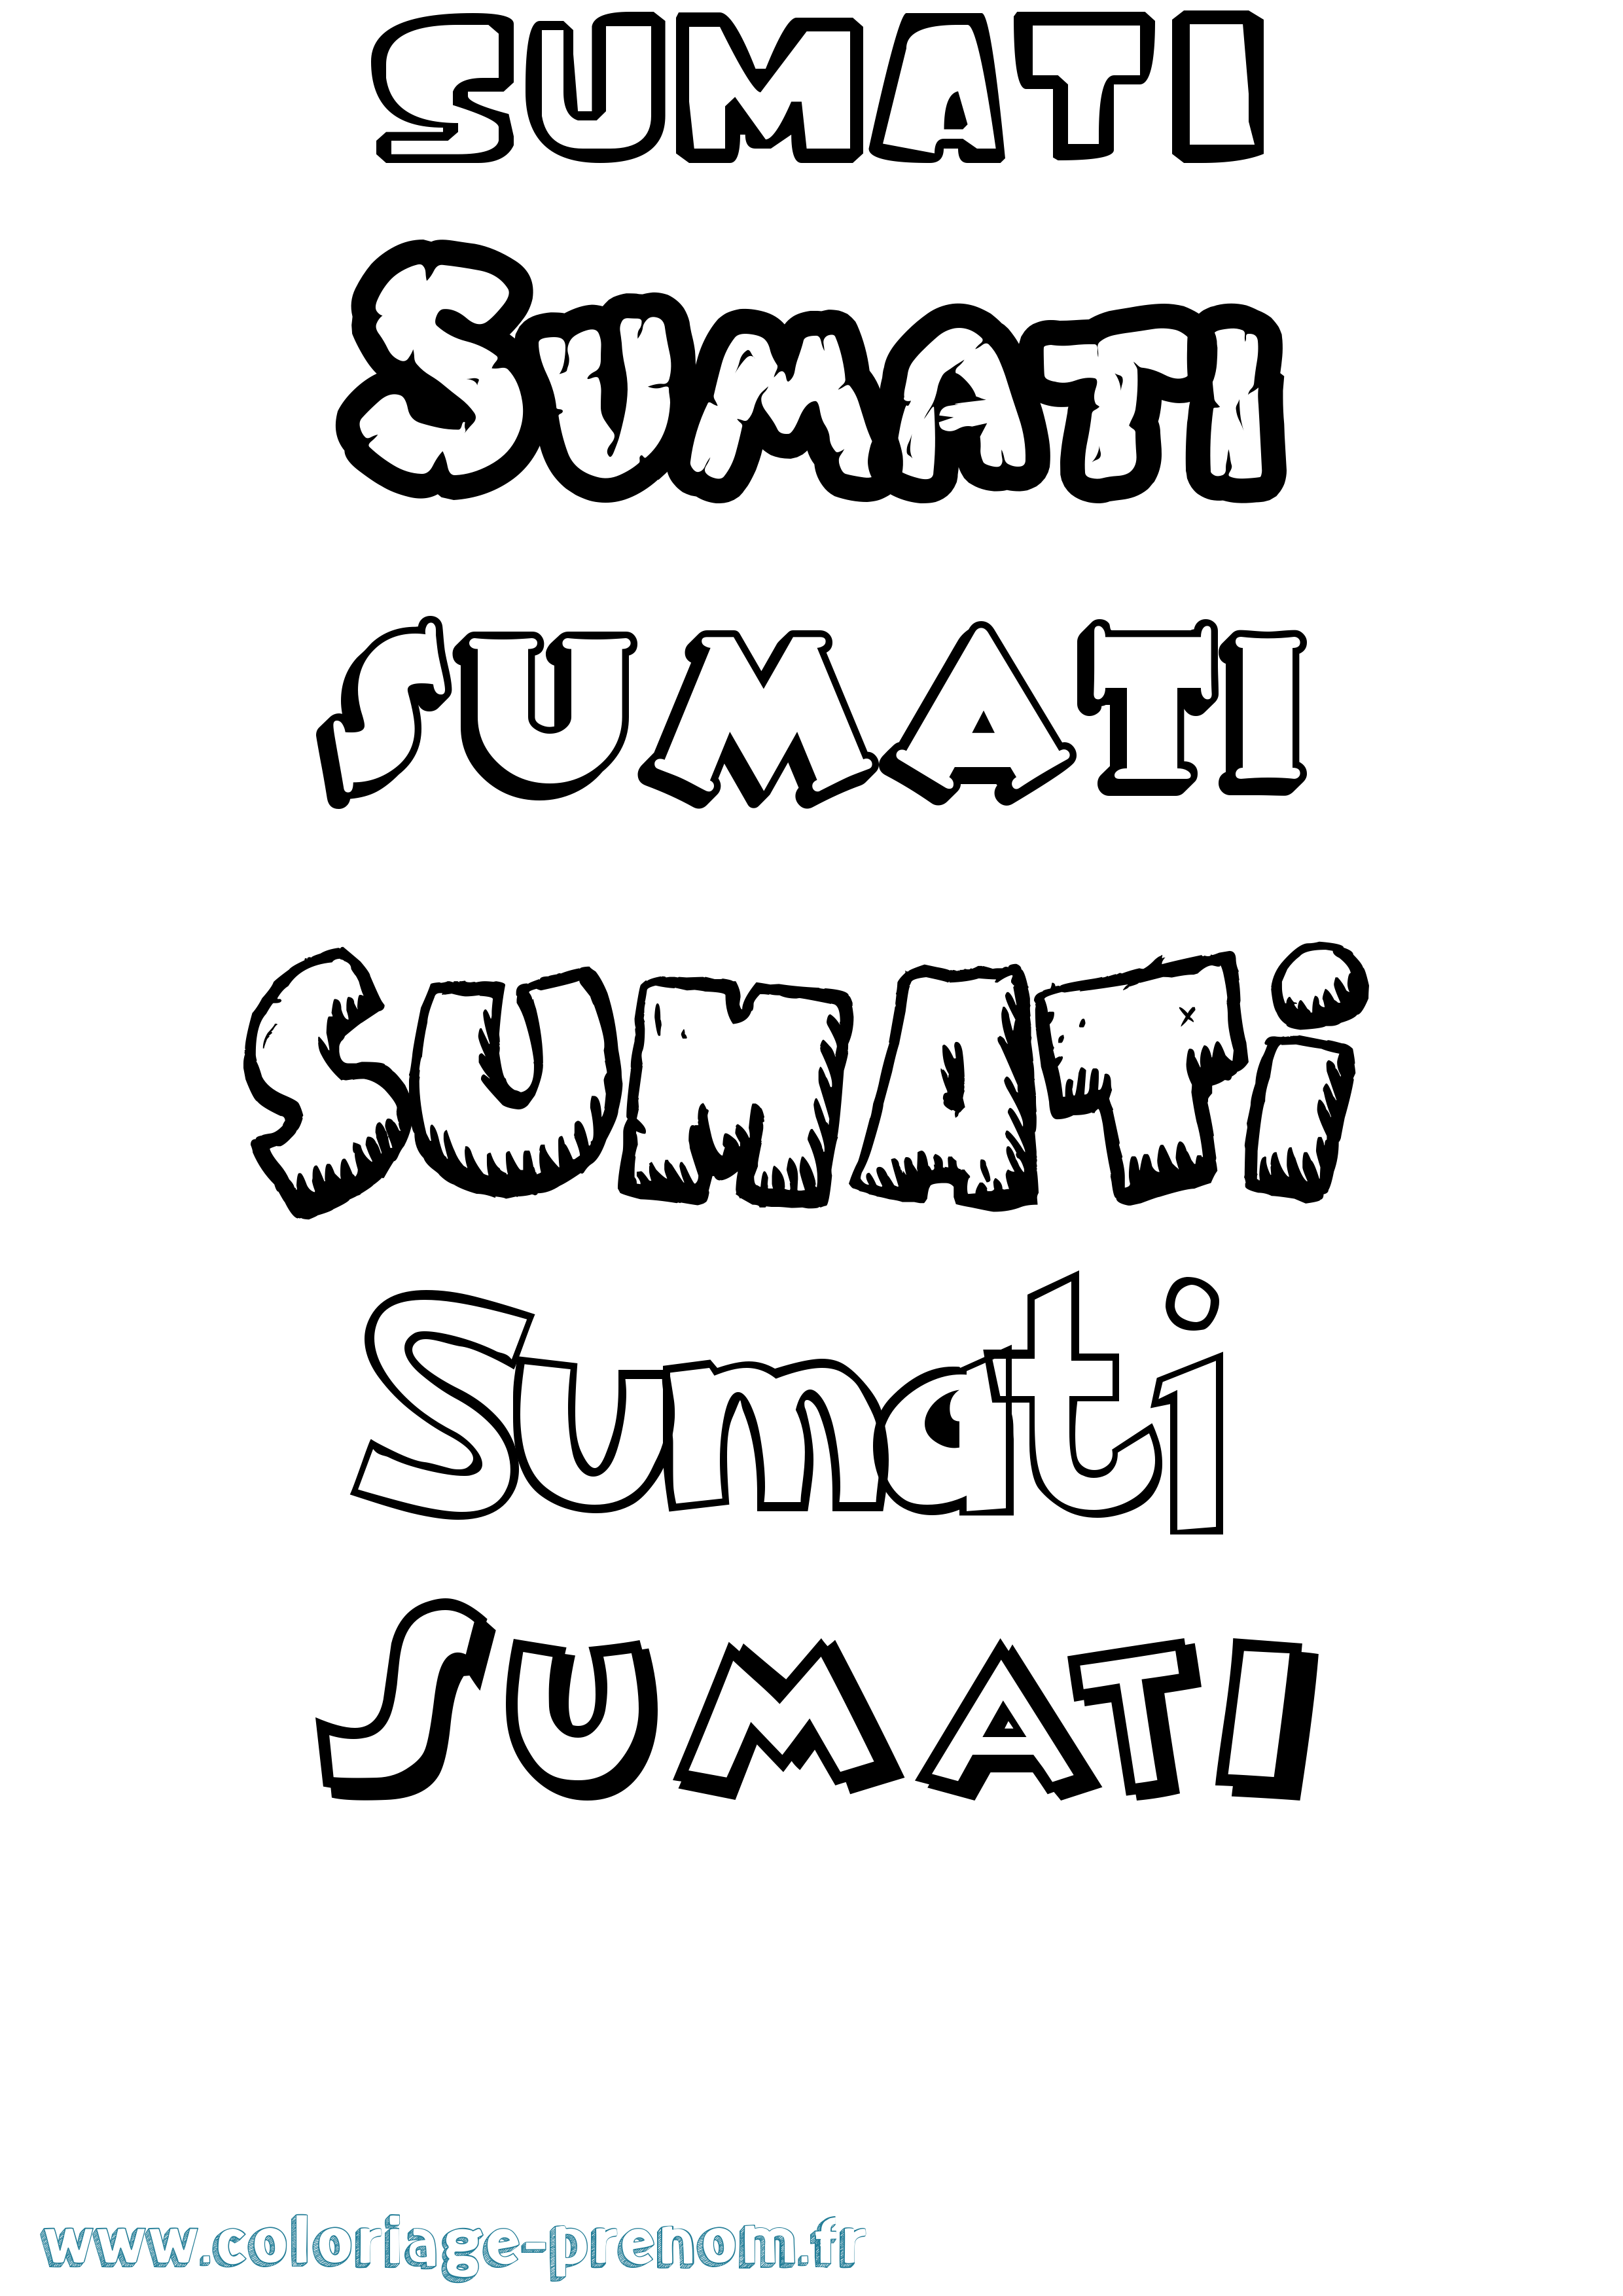 SUMATI
SUMATI
SUMATI
SUMATi
Sumati
SUMATI
www.coloriage-prenom.fr